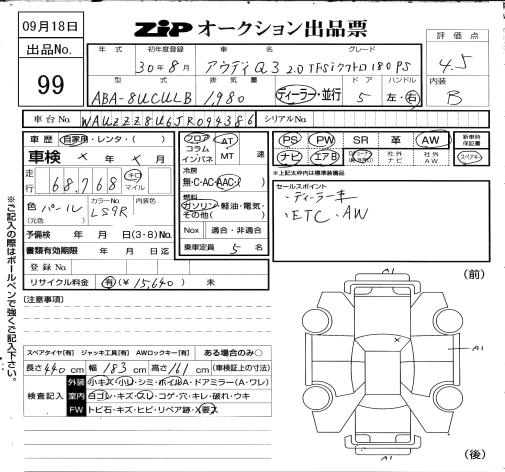 09月18日
ZIP オークション出品票
出品No.
99
評価点
4.5
内装
B
年式 初年度登録 車名 グレード
30年8月 アウディQ3 2.0TFSiクワトロ180PS
型式 排気量 ドア ハンドル
ABA-8UCULB 1,980 ディーラー・並行 5 左・右
車台No. WAUZZZ8U6JR094386 シリアルNo.
車歴 自家用・レンタ・( )
車検 × 年 × 月
走行 68,768 キロ マイル
色 パール カラーNo. LS9R 内装色
(元色)
予備検 年 月 日(3・8)もの
書類有効期限 年 月 日迄
登録No.
リサイクル料金 有(¥15,640) 未
フロア コラム インパネ AT MT 速
冷房
無・C・AC・AAC・( )
燃料
ガソリン・軽油・電気・その他( )
Nox 適合・非適合
乗車定員 5 名
PS PW SR 革 AW
ナビ エアB 社外ナビ 社外AW
新車時保証書
スペアキー
※上記太枠内は標準装備品
セールスポイント
・ディーラー車
・ETC・AW
(注意事項)
スペアタイヤ[有] ジャッキ工具[有] AWロックキー[有] ある場合のみ○
長さ440cm 幅183cm 高さ161cm (車検証上の寸法)
検査記入
外装 小キズ・小凹・シミ・ボイルA・ドアミラー(A・ワレ)
室内 ヨゴレ・キズ・スレ・コゲ・穴・キレ・破れ・ウキ
FW トビ石・キズ・ヒビ・リペア跡・X要X
※ご記入の際はボールペンで強くご記入下さい。
(前)
A1
×
A1
A1
(後)